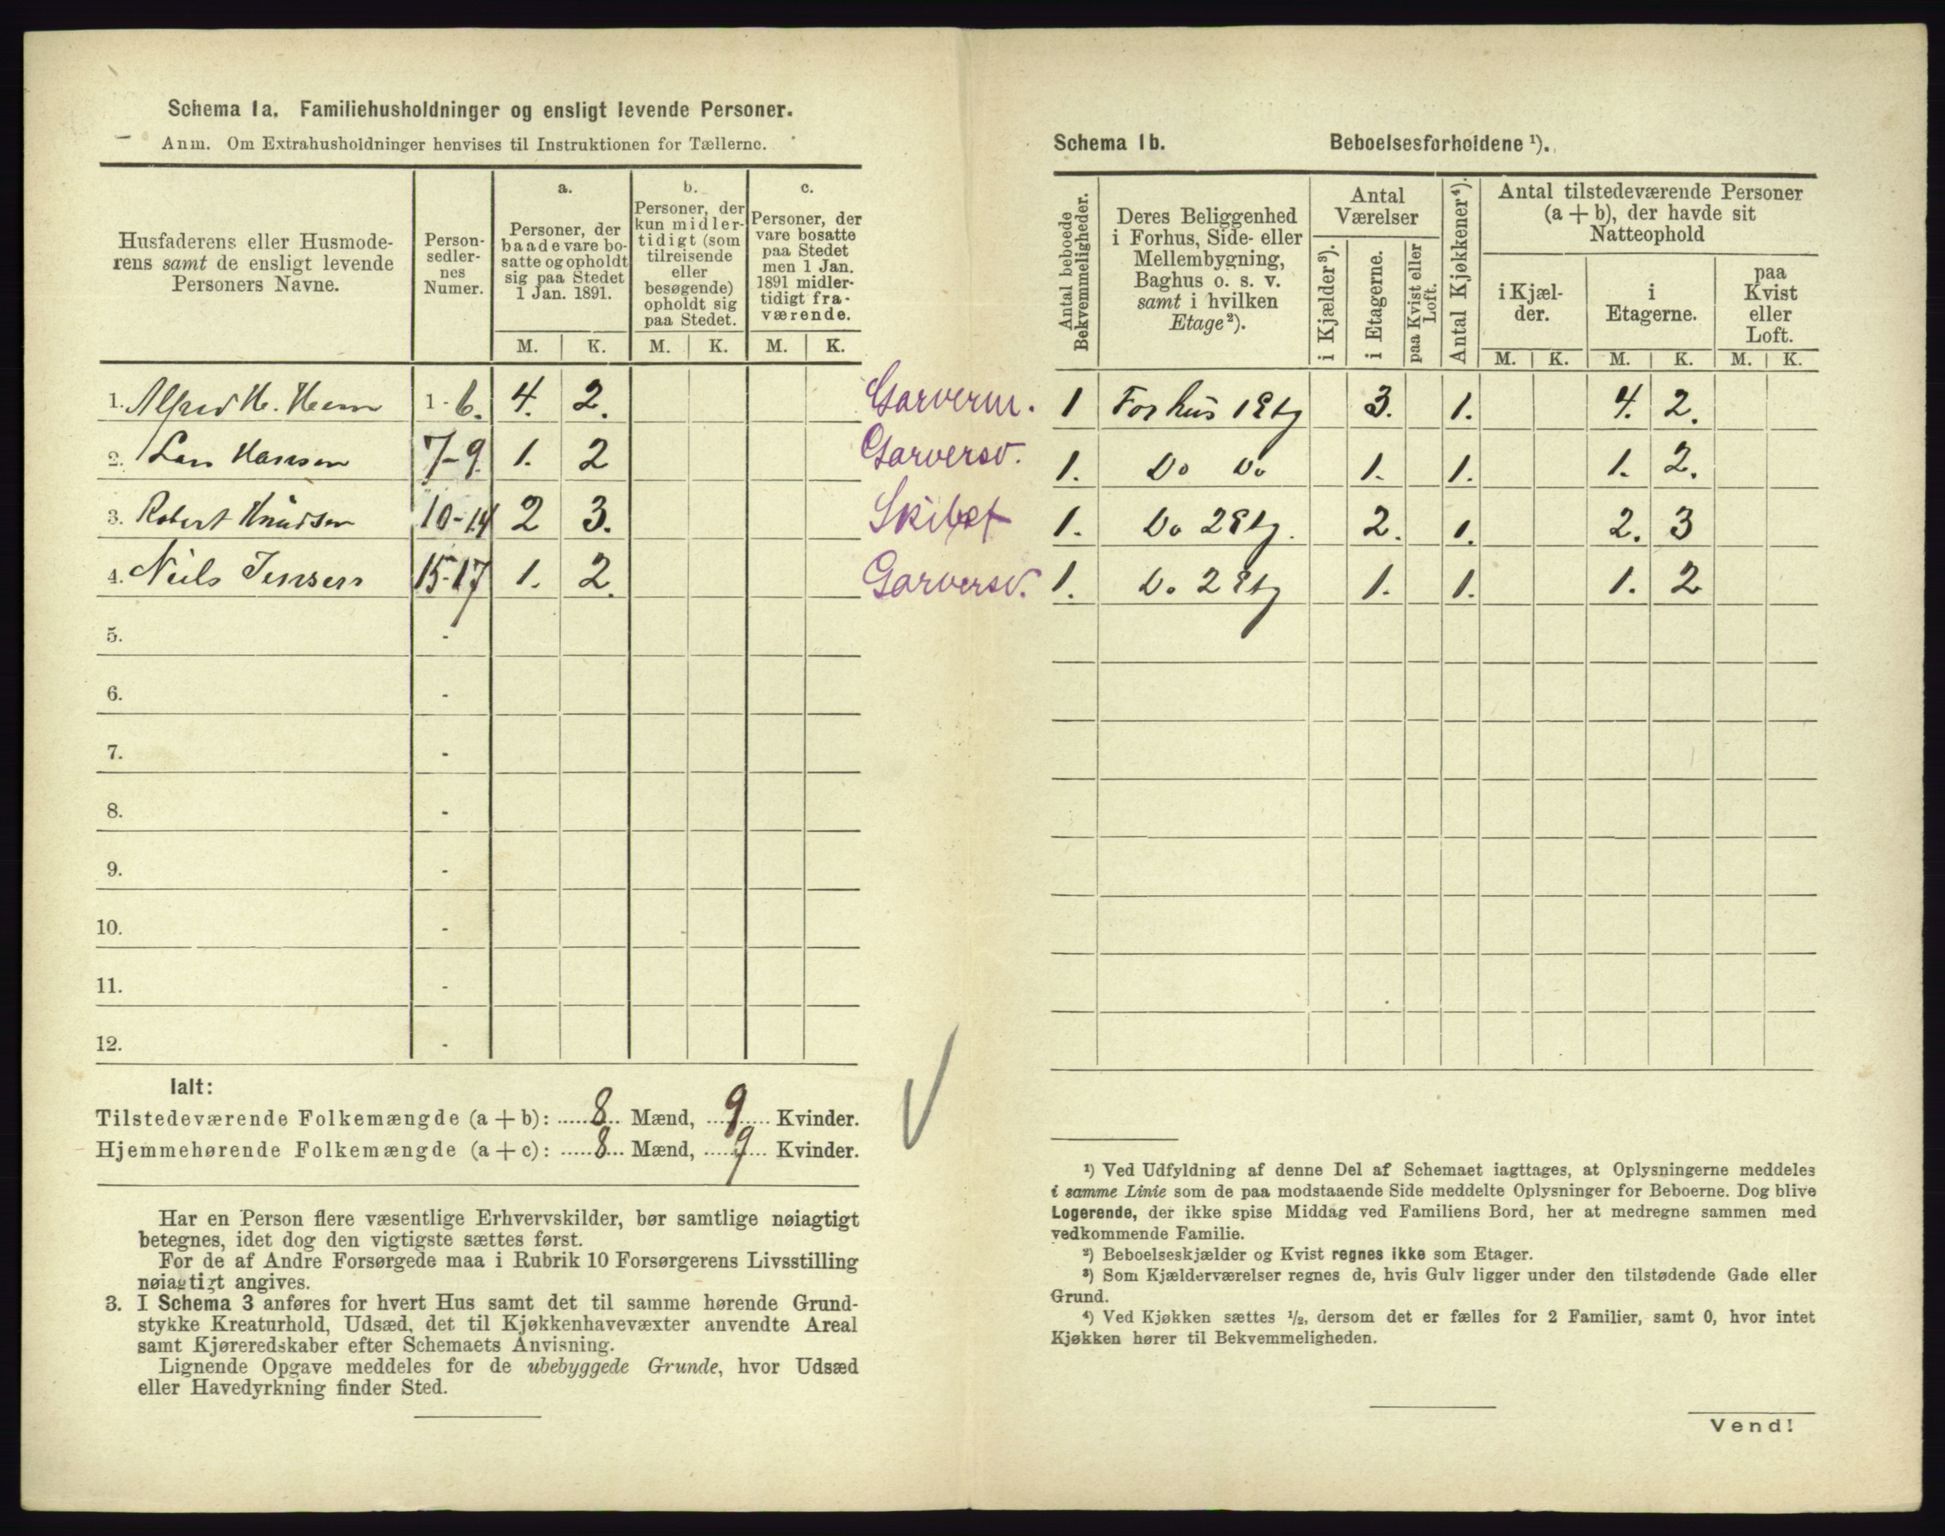 Schema 1a. Familiehusholdninger og ensligt levende Personer.
Anm. Om Extrahusholdninger henvises til Instruktionen for Tællerne.
Husfaderens eller Husmode-
rens samt de ensligt levende
Personers Navne.
Person-
sedler-
nes
Numer.
a.
Personer, der
baade vare bo-
satte og opholdt
sig paa Stedet
1 Jan. 1891.
b.
Personer, der
kun midler-
tidigt (som
tilreisende
eller
besøgende)
opholdt sig
paa Stedet.
c.
Personer, der
vare bosatte
paa Stedet
men 1 Jan.
1891 midler-
tidigt fra-
værende.
M. K. M. K. M. K.
1. Alfred H. Hem 1-6. 4. 2. Garverm.
2. Lars Hansen 7-9. 1. 2 Garversv.
3. Robert Knudsen 10-14 2 3.
4. Niels Jensen 15-17 1. 2. Garversv.
5. -
6. -
7. -
8. -
9. -
10. -
11. -
12. -
Ialt:
Tilstedeværende Folkemængde (a + b): 8 Mænd, 9 Kvinder.
Hjemmehørende Folkemængde (a + c): 8 Mænd, 9 Kvinder.
Har en Person flere væsentlige Erhvervskilder, bør samtlige nøiagtigt
betegnes, idet dog den vigtigste sættes først.
For de af Andre Forsørgede maa i Rubrik 10 Forsørgerens Livsstilling
nøiagtigt angives.
3. I Schema 3 anføres for hvert Hus samt det til samme hørende Grund-
stykke Kreaturhold, Udsæd, det til Kjøkkenhavevæxter anvendte Areal
samt Kjøreredskaber efter Schemaets Anvisning.
Lignende Opgave meddeles for de ubebyggede Grunde, hvor Udsæd
eller Havedyrkning finder Sted.
Schema 1b. Beboelsesforholdene ¹).
Antal beboede
Bekvemmeligheder.
Deres Beliggenhed
i Forhus, Side- eller
Mellembygning,
Baghus o. s. v.
samt i hvilken
Etage²).
Antal
Værelser
i Kjælder³).
i Etagerne.
paa Kvist eller
Loft.
Antal Kjøkkener⁴).
Antal tilstedeværende Personer
(a + b), der havde sit
Natteophold
i Kjæl-
der.
i
Etagerne.
paa
Kvist
eller
Loft.
M. K. M. K. M. K.
1 Forhus 1 Etg 3. 1. 4. 2.
1. Do Do 1. 1. 1. 2.
1. Do 2 Etg. 2. 1. 2. 3
1. Do 2 Etg 1. 1. 1. 2
¹) Ved Udfyldning af denne Del af Schemaet iagttages, at Oplysningerne meddeles
i samme Linie som de paa modstaaende Side meddelte Oplysninger for Beboerne. Dog blive
Logerende, der ikke spise Middag ved Familiens Bord, her at medregne sammen med
vedkommende Familie.
²) Beboelseskjælder og Kvist regnes ikke som Etager.
³) Som Kjælderværelser regnes de, hvis Gulv ligger under den tilstødende Gade eller
Grund.
⁴) Ved Kjøkken sættes ½, dersom det er fælles for 2 Familier, samt 0, hvor intet
Kjøkken hører til Bekvemmeligheden.
Vend!